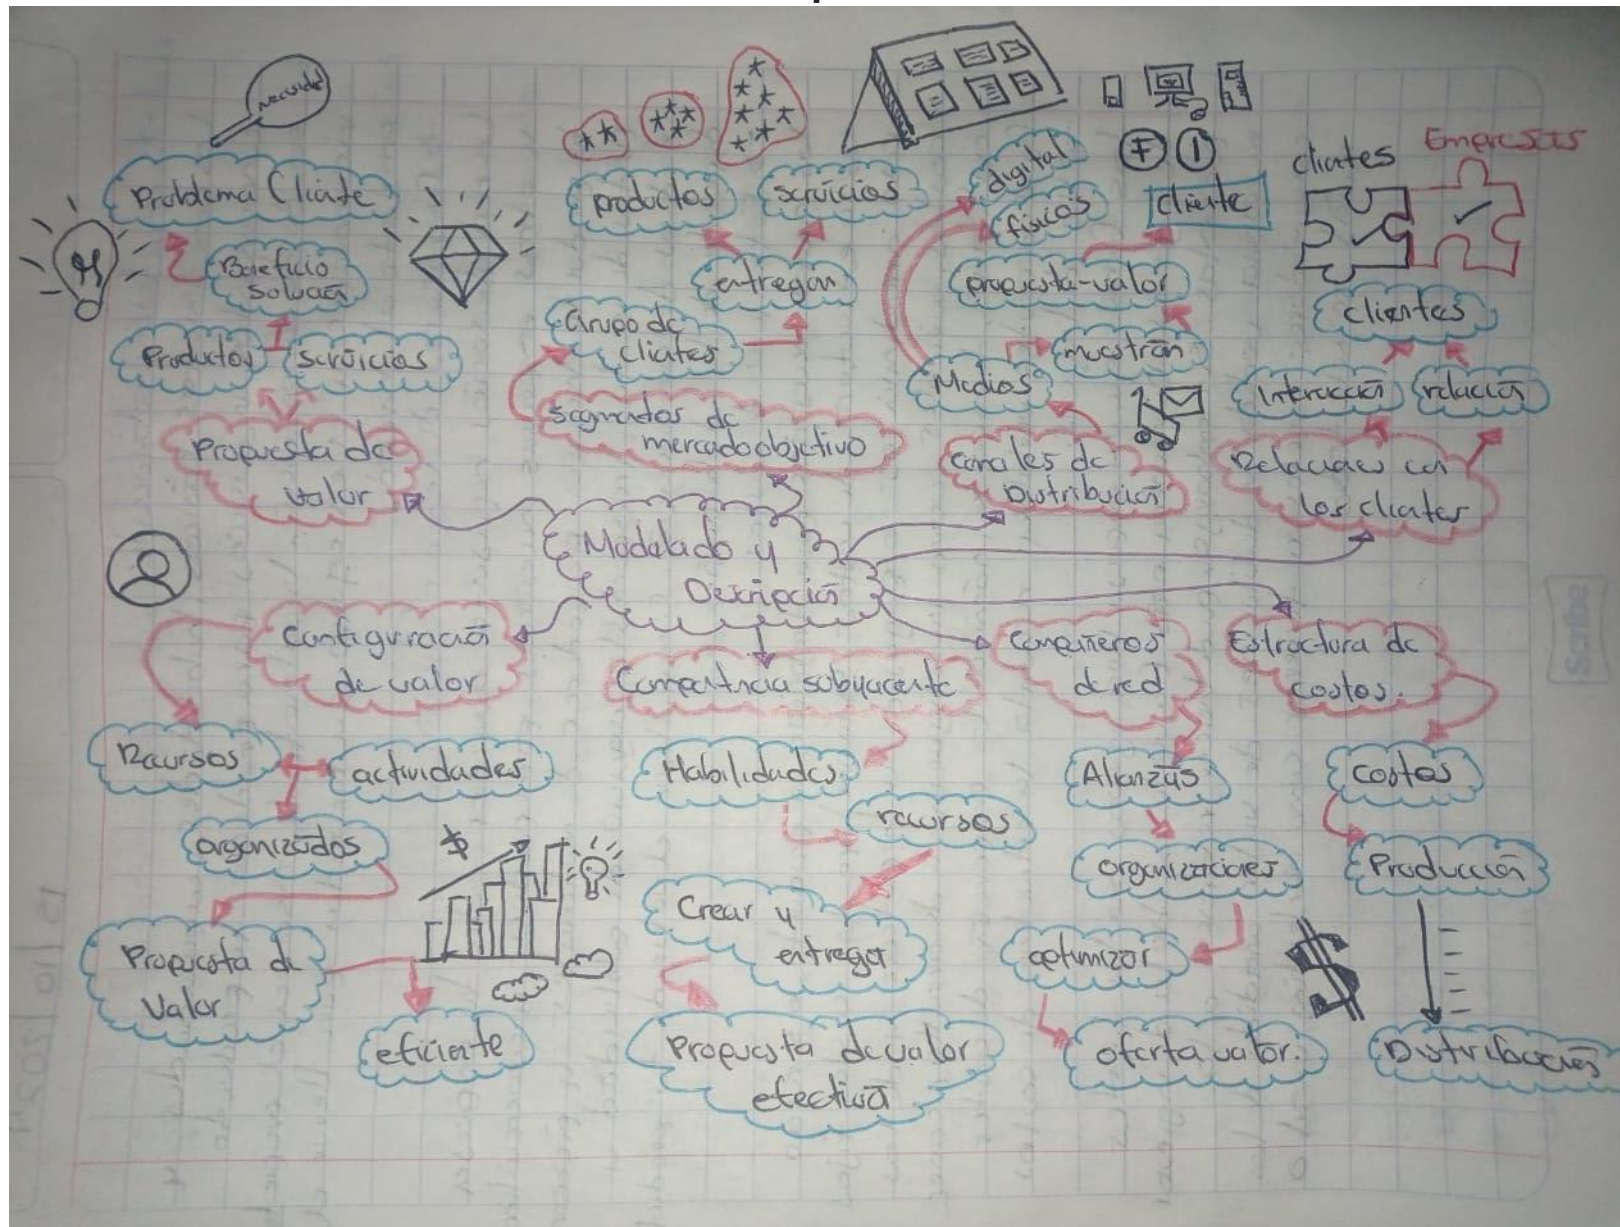 Necesidad
Problema Cliente
Beneficio
solución
Productos
servicios
Propuesta de
valor
productos
servicios
entregan
Grupo de
clientes
Segmentos de
mercado objetivo
digital
físicos
F
D
cliente
propuesta-valor
muestran
Medios
Canales de
Distribución
clientes
Empresas
clientes
Interacción
relación
Relaciones con
los clientes
Modelado y
Descripción
Configuración
de valor
Recursos
actividades
organizados
Propuesta de
Valor
eficiente
$
Competencia subyacente
Habilidades
recursos
Crear y
entregar
Propuesta de valor
efectiva
Compañeros
de red
Alianzas
organizaciones
optimizar
oferta valor.
Estructura de
costos.
costos
Producción
$
Distribución
Scribe